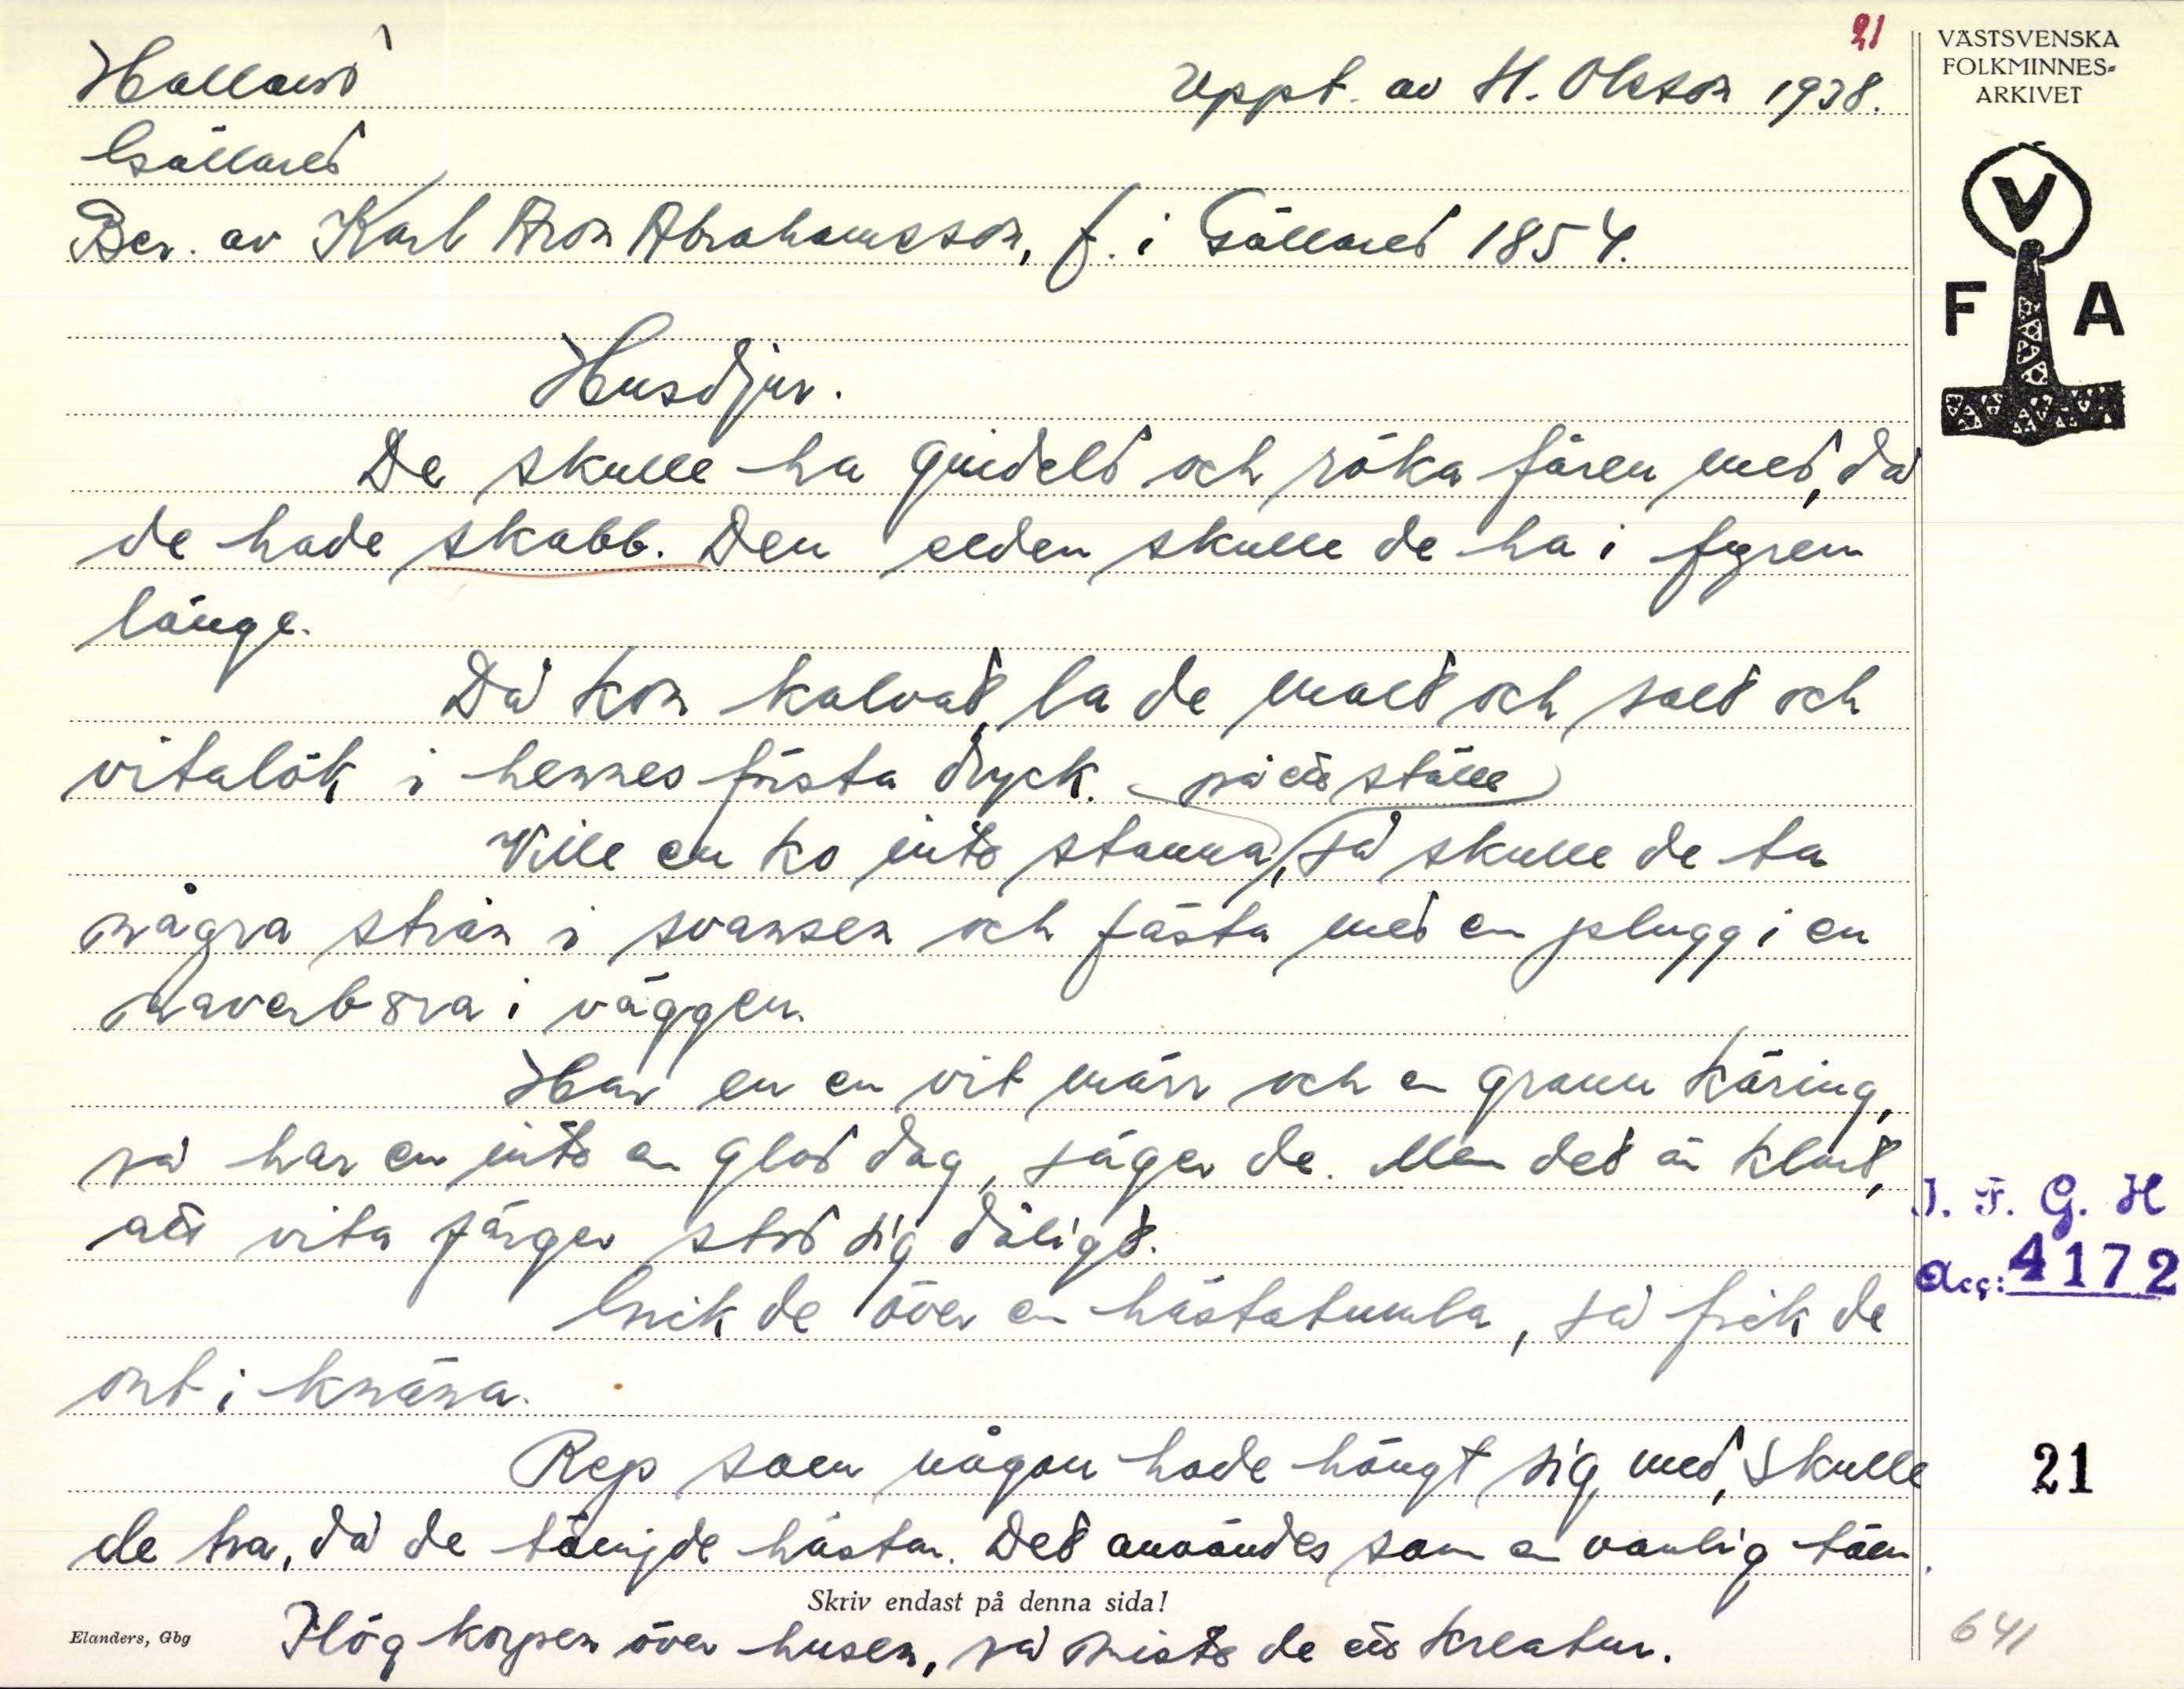 21
Halland
Uppt. av H. Olsson 1938.
VÄSTSVENSKA
FOLKMINNES=
ARKIVET
Gällared
V
F A
Ber. av Karl Aron Abrahamsson, f. i Gällared 1854.
Husdjur.
De skulle ha gnideld och röka fåren med, då
de hade skabb. Den elden skulle de ha i fyren
länge.
Då kon kalvat, la de malt och salt och
vitalök i hennes första dryck.
på ett ställe
Ville en ko inte stanna, så skulle de ta
några strån i svansen och fästa med en plugg i en
naverbora i väggen.
Har en en vit märr och en grann käring,
så har en inte en glad dag, säger de. Men det är klart,
att vita färger stod sig dåligt.
Gick de över en hästatumla, så fick de
ont i knäna.
Rep som någon hade hängt sig med, skulle
de ha, då de tämjde hästar. Det användes som en vanlig töm.
Flög korpen över husen, så miste de ett kreatur.
Skriv endast på denna sida!
Elanders, Gbg
I. F. G. H
Acc: 4172
21
641